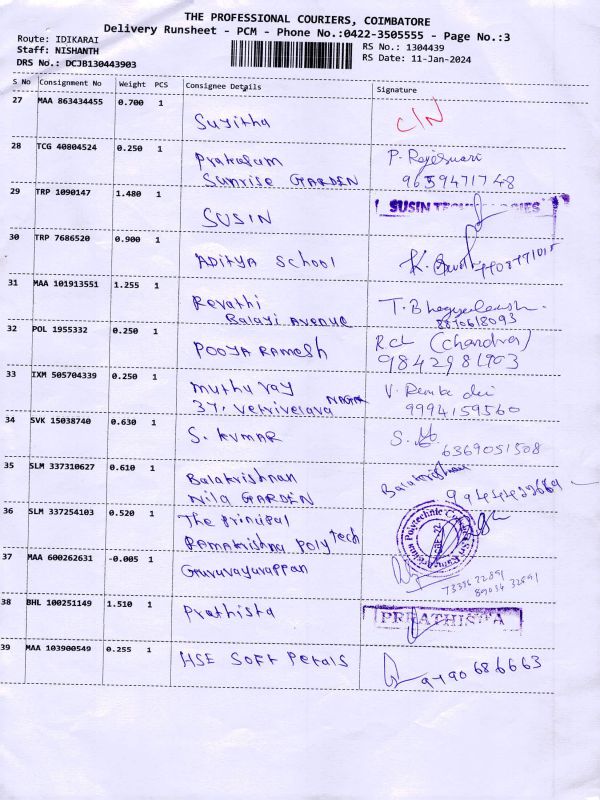 THE PROFESSIONAL COURIERS, COIMBATORE
Delivery Runsheet - PCM - Phone No.:0422-3505555 - Page No.:3
Route: IDIKARAI
RS No.: 1304439
Staff: NISHANTH
RS Date: 11-Jan-2024
DRS No.: DCJB130443903
S No Consignment No Weight PCS Consignee Details Signature
27 MAA 863434455 0.700 1
Sujitha C/N
28 TCG 40804524 0.250 1
Prakasam P. Rajeswari
Sunrise GARDEN 9659471748
29 TRP 1090147 1.480 1
SUSIN SUSIN
30 TRP 7686520 0.900 1
ADITYA School K.
31 MAA 101913551 1.255 1
Revathi T.
Balaji AVENUE 8870618093
32 POL 1955332 0.250 1
POOJA RAMESH Rcd (Chandra)
9842981903
33 IXM 505704339 0.250 1
muthu raj V.
37. Vetrivelava NAGAR 9994159560
34 SVK 15038740 0.630 1
S. KUMAR S.
6369051508
35 SLM 337310627 0.610 1
Balakrishnan Balakrishnan
Nila GARDEN
36 SLM 337254103 0.520 1
The Principal
Ramakrishna Poly Tech
37 MAA 600262631 -0.005 1
Guruvayurappan
38 BHL 100251149 1.510 1
Prathista PRRATHISTA
39 MAA 103900549 0.255 1
HSE SOFT Petals